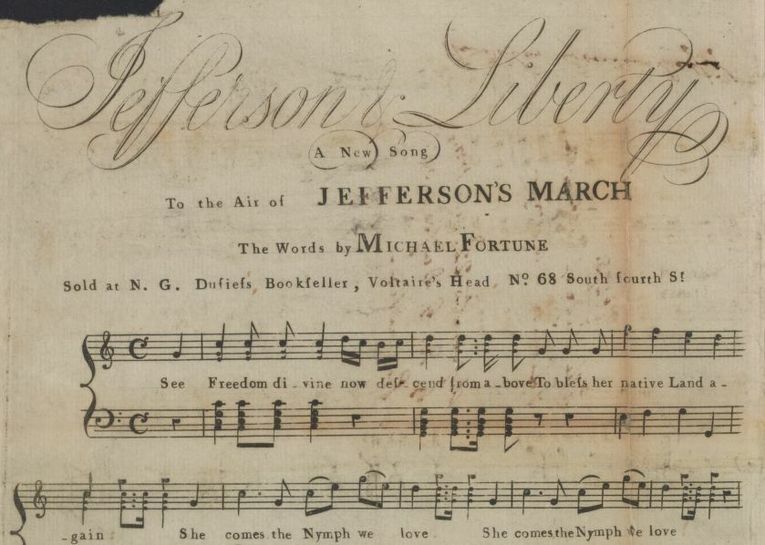 Jefferson & Liberty
A New Song
To the Air of JEFFERSON'S MARCH
The Words by MICHAEL FORTUNE
Sold at N. G. Dufiefs Bookſeller, Voltaire's Head Nº 68 South fourth St
See Freedom di - vine now deſ - cend from a - bove To bleſs her native Land a -
- gain She comes the Nymph we love She comes the Nymph we love